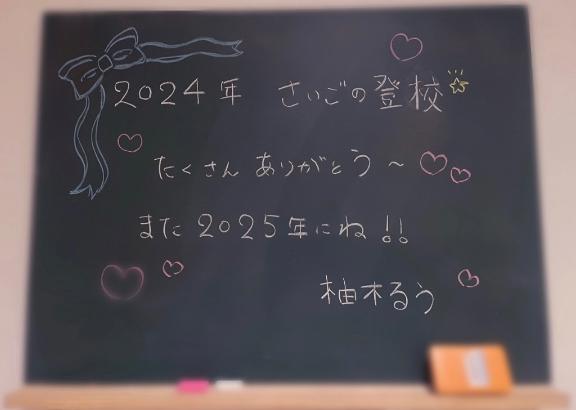 2024年 さいごの登校
たくさん ありがとう～
また 2025年にね!!
柚木るう